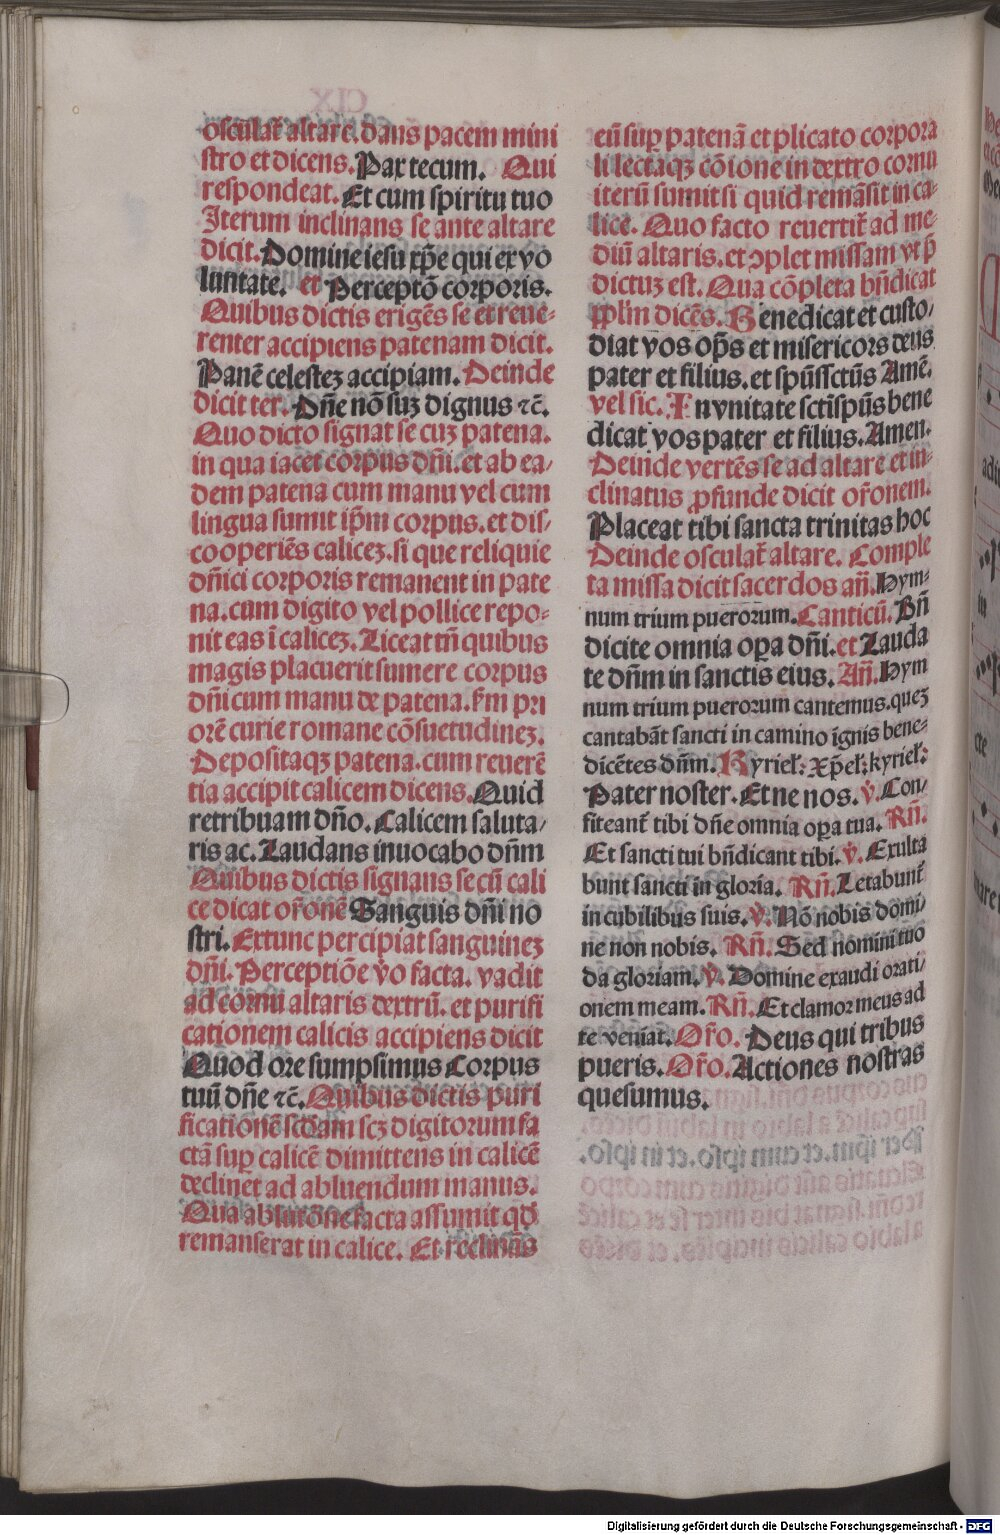 osculat̃ altare. dans pacem mini
stro et dicens. Pax tecum. Qui
respondeat. Et cum spiritu tuo
Iterum inclinans se ante altare
dicit. Domine iesu xp̄e qui ex vo
luntate. et Perceptō corporis.
Quibus dictis erigēs se et reue⸗
renter accipiens patenam dicit.
Panē celesteꝫ accipiam. Deinde
dicit ter. Dn̄e nō suꝫ dignus ⁊c̄.
Quo dicto signat se cuꝫ patena.
in qua iacet corpus dn̄i. et ab ea/
dem patena cum manu vel cum
lingua sumit ip̄m corpus. et dis/
cooperiēs caliceꝫ. si que reliquie
dn̄ici corporis remanent in pate
na. cum digito vel pollice repo⸗
nit eas ī caliceꝫ. Liceat tn̄ quibus
magis placuerit sumere corpus
dn̄i cum manu de patena. ẜm pri
orē curie romane cōsuetudineꝫ.
Depositaqꝫ patena. cum reuerē
tia accipit calicem dicens. Quid
retribuam dn̄o. Calicem saluta/
ris ac. Laudans inuocabo dn̄m
Quibus dictis signans se cū cali
ce dicat or̄onē Sanguis dn̄i no
stri. Extunc percipiat sanguineꝫ
dn̄i. Perceptiōe v̄o facta. vadit
ad cornu altaris dextrū. et purifi
cationem calicis accipiens dicit
Quod ore sumpsimus Corpus
tuū dn̄e ⁊c̄. Quibus dictis puri
ficationē scd̄am scꝫ digitorum fa
ctā suꝑ calicē dimittens in calicē
declinet ad abluendum manus.
Qua ablutōne facta assumit qd̄
remanserat in calice. Et reclināˢ
eū suꝑ patenā et plicato corpora
li lectaqꝫ cōione in dextro cornu
iterū sumit si quid remāsit in ca⸗
lice. Quo facto reuertit̃ ad me⸗
diū altaris. et ꝯplet missam vt p̄
dictuꝫ est. Qua cōpleta bn̄dicat
pplm̄ dicēs. Benedicat et custo/
diat vos op̄s et misericors deus
pater et filius. et spūssctūs Amē.
vel sic. In vnitate sctī spūs bene
dicat vos pater et filius. Amen.
Deinde vertēs se ad altare et in⸗
clinatus ꝓfunde dicit or̄onem.
Placeat tibi sancta trinitas hoc
Deinde osculat̃ altare. Comple
ta missa dicit sacerdos an̄. Hym⸗
num trium puerorum. Canticū. Bn̄
dicite omnia oꝑa dn̄i. et Lauda
te dn̄m in sanctis eius. An̄. Hym
num trium puerorum cantemus. queꝫ
cantabāt sancti in camino ignis bene⸗
dicētes dn̄m. Kyriel̄: Xp̄el̄: kyriel̄:
Pater noster. Et ne nos. v̄. Con/
fiteant̃ tibi dn̄e omnia oꝑa tua. Rn̄.
Et sancti tui bn̄dicant tibi. v̄. Exulta
bunt sancti in gloria. Rn̄. Letabunt̃
in cubilibus suis. v̄. Nō nobis domi/
ne non nobis. Rn̄. Sed nomini tuo
da gloriam. v̄. Domine exaudi orati/
onem meam. Rn̄. Et clamor meus ad
te veniat. Or̄o. Deus qui tribus
pueris. Or̄o. Actiones nostras
quesumus.
Digitalisierung gefördert durch die Deutsche Forschungsgemeinschaft - DFG